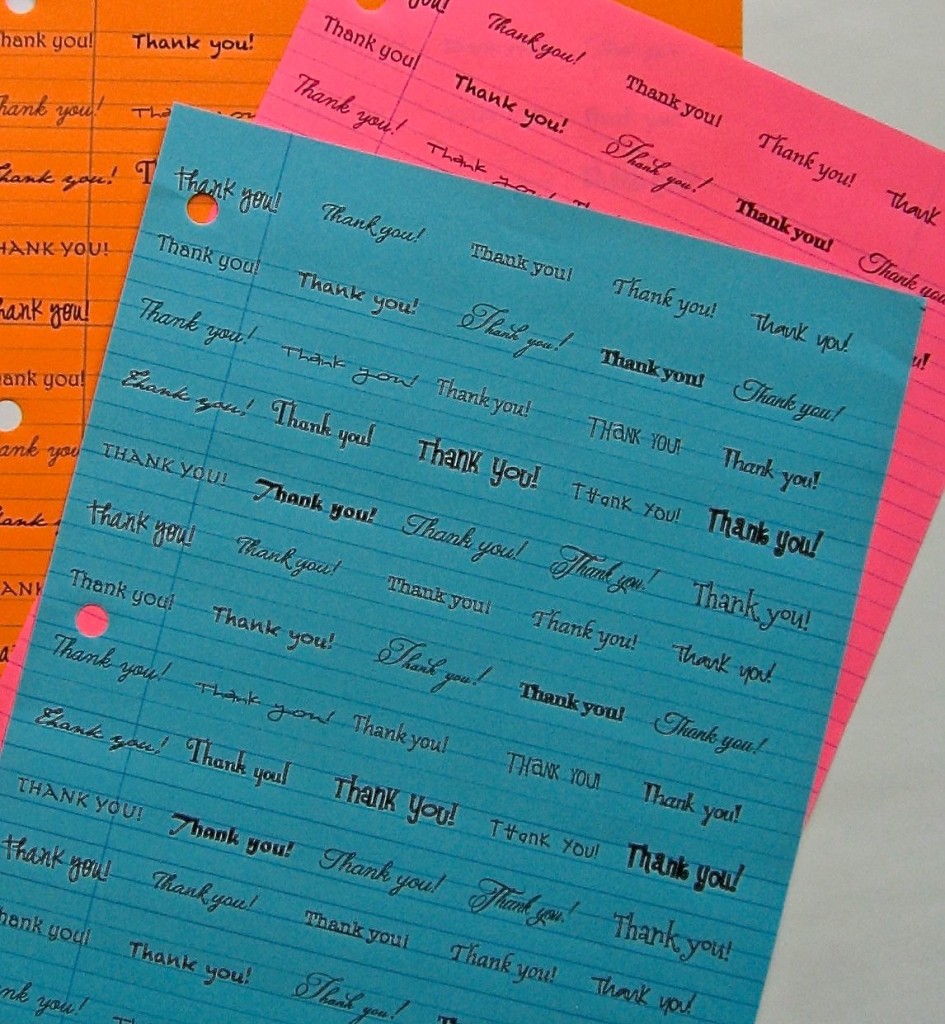 hank you! Thank you!
hank you!
hank you! T
HANK YOU!
hank you!
ank you!
ank you
ank
ANK
you! Thank you! Thank you! Thank you! Thank
Thank you! Thank you! Thank you! Thank you! Thank you
Thank you! Thank you!
u!
thank you! Thank you! Thank you! Thank you! Thank you!
Thank you! Thank you! Thank you! Thank you! Thank you!
Thank you! Thank you! Thank you! THANK YOU! Thank you!
Thank you! Thank you! Thank You! THANK YOU! Thank you!
THANK YOU! Thank you! Thank you! Thank you! Thank you!
thank you! Thank you! Thank you! Thank you! Thank you!
Thank you! Thank you! Thank you! Thank you! Thank you!
Thank you! Thank you! Thank you! THANK YOU! Thank you!
Thank you! Thank you! Thank You! THANK YOU! Thank you!
THANK YOU! Thank you! Thank you! Thank you! Thank you!
thank you! Thank you! Thank you! Thank you! Thank you!
hank you! Thank you! Thank you!
nk you!